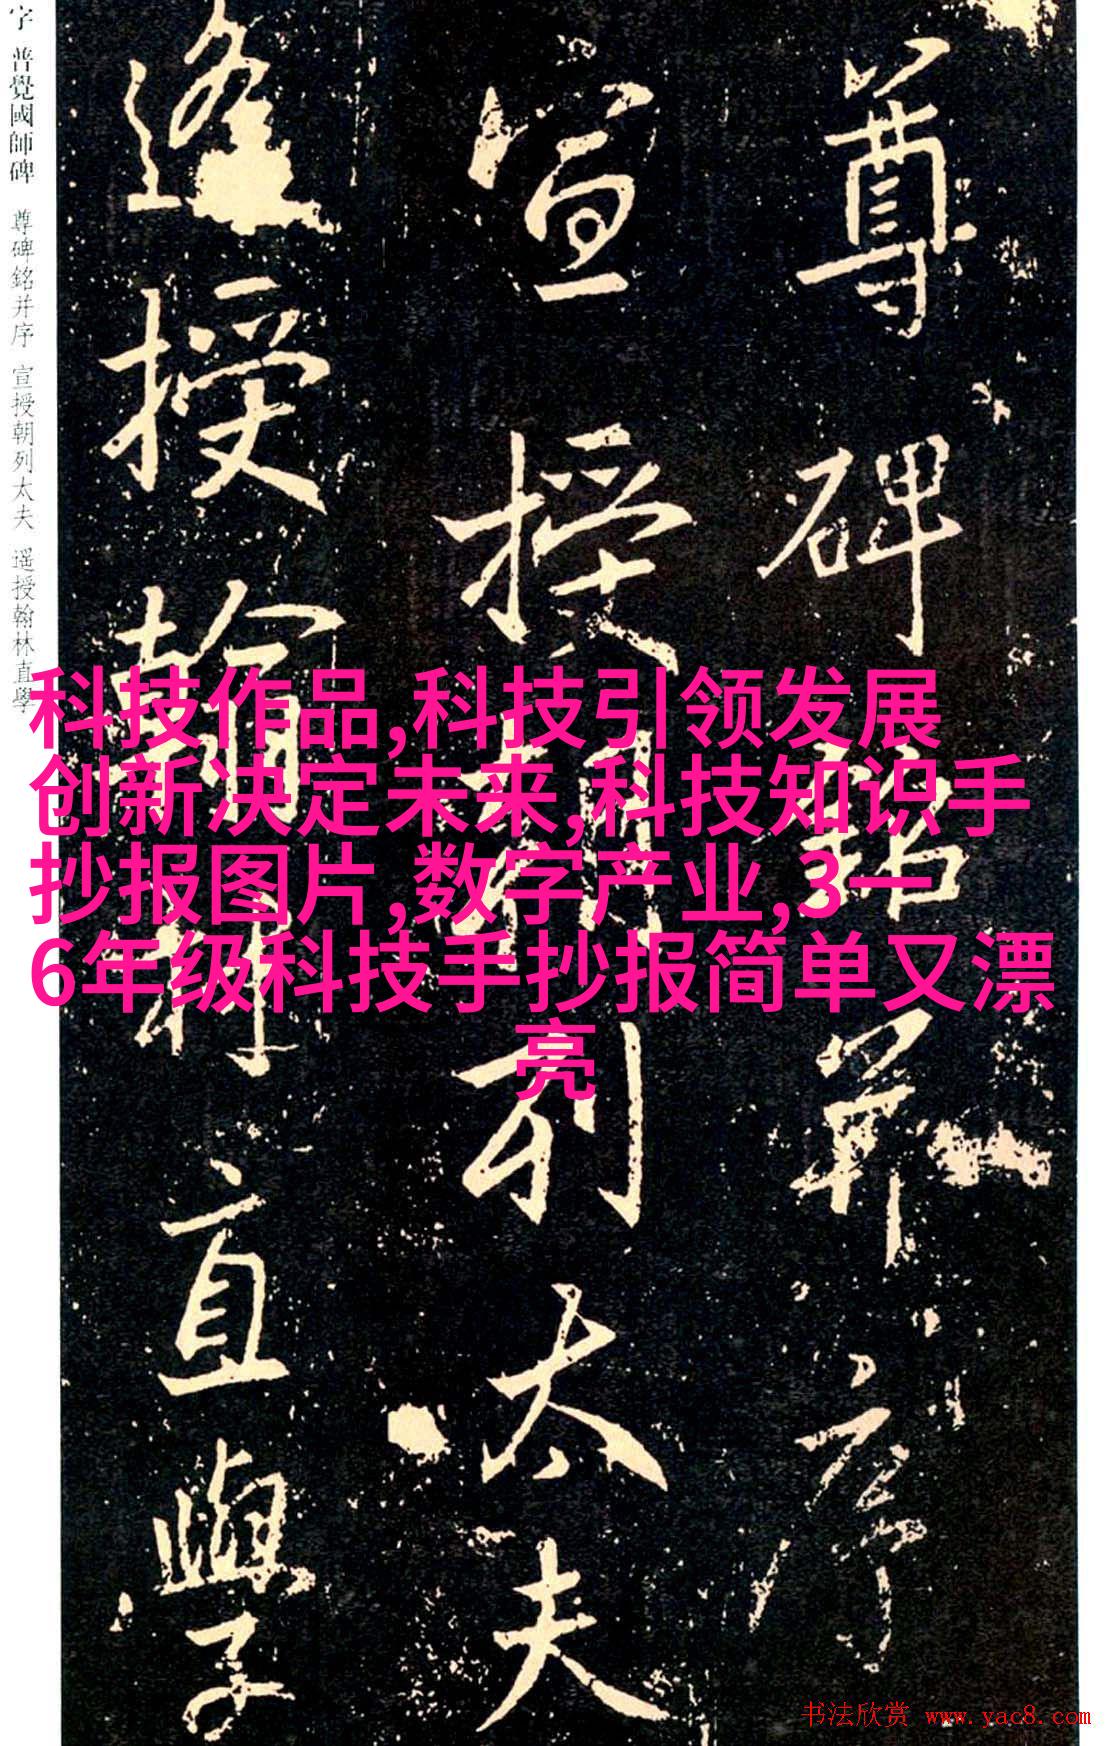 字 普覺國師碑 尊碑銘并序 宣授朝列太夫 遥授翰林直學
尊碑銘并序
宣授朝列太夫
遥授翰林直學
科技作品,科技引领发展
创新决定未来,科技知识手
抄报图片,数字产业,3一
6年级科技手抄报简单又漂
亮
书法欣赏 www.yac8.com